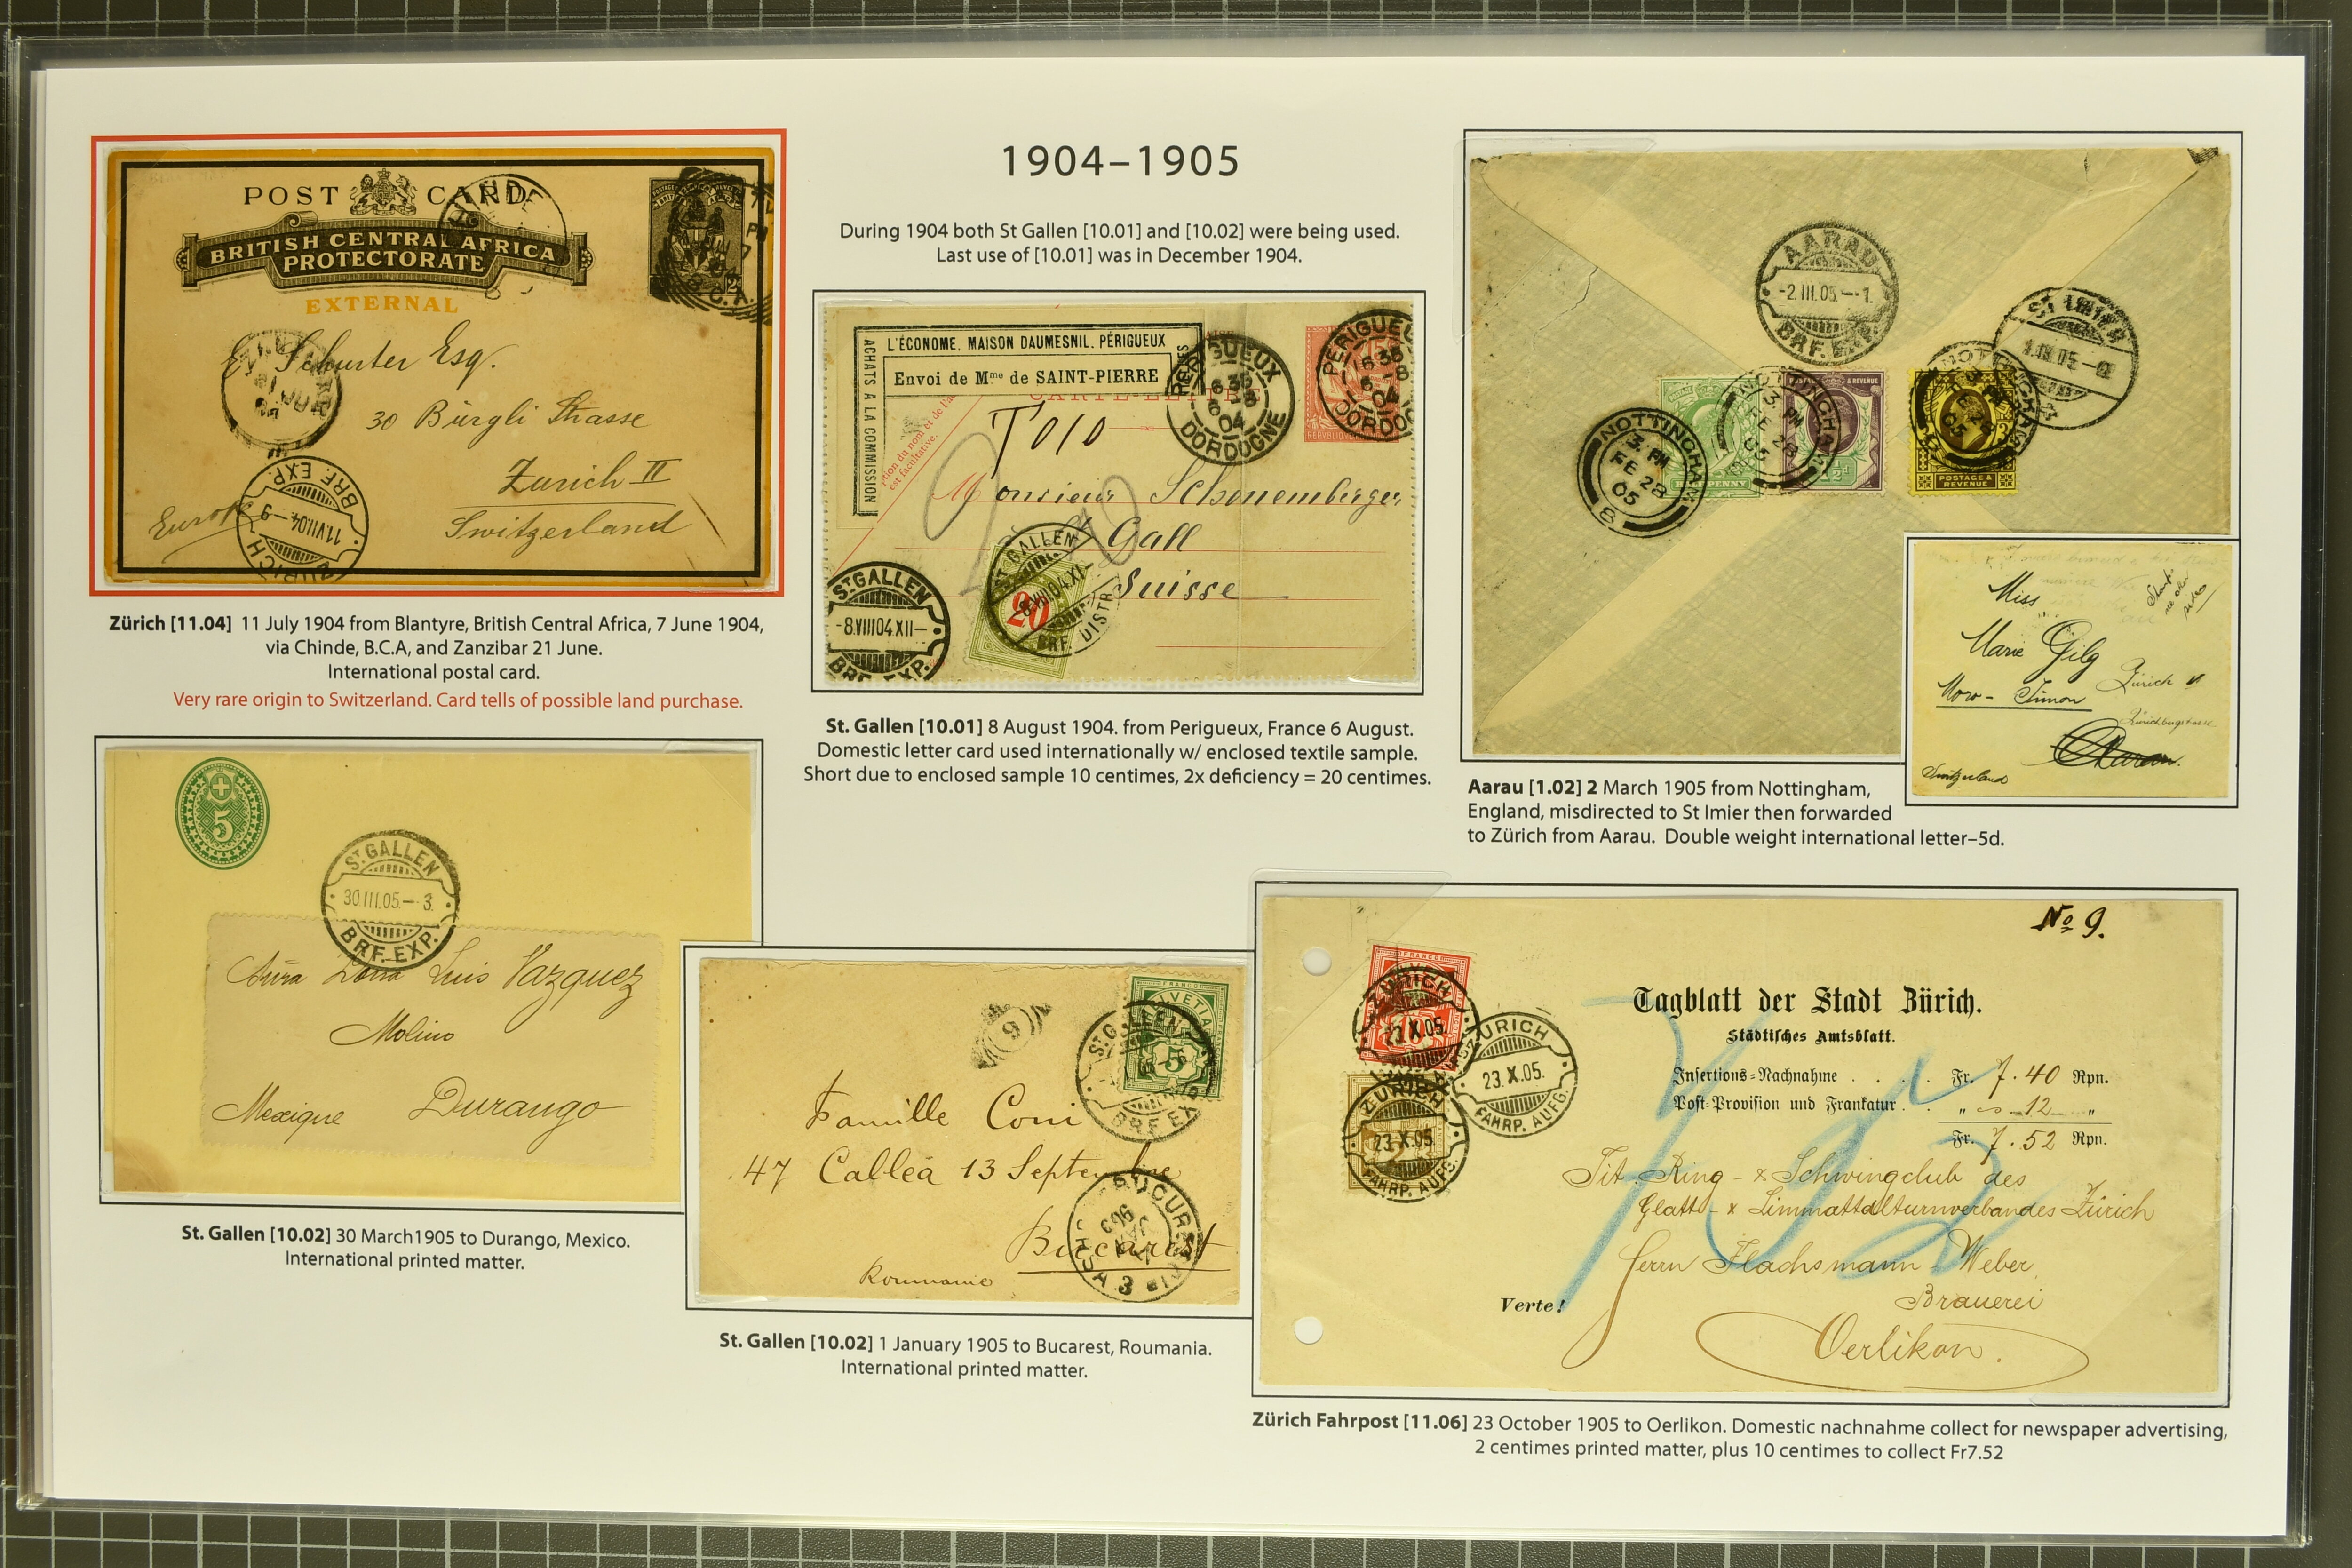 1904–1905
During 1904 both St Gallen [10.01] and [10.02] were being used.
Last use of [10.01] was in December 1904.
POST CARD
BRITISH CENTRAL AFRICA
PROTECTORATE
EXTERNAL
E. Schurter Esq.
30 Bürgli Strasse
Zurich II
Switzerland
Europe
ZÜRICH
11.VII.04–9
BRF. EXP.
Zürich [11.04] 11 July 1904 from Blantyre, British Central Africa, 7 June 1904,
via Chinde, B.C.A, and Zanzibar 21 June.
International postal card.
Very rare origin to Switzerland. Card tells of possible land purchase.
L'ÉCONOME. MAISON DAUMESNIL. PÉRIGUEUX
Envoi de Mme de SAINT-PIERRE
ACHATS A LA COMMISSION
CARTE-LETTRE
est facultative.
PERIGUEUX
16 35
6 -8
04
DORDOGNE
PERIGUEUX
16 35
6 -8
04
DORDOGNE
T010
Monsieur Schonemberger
St Gall
Suisse
ST. GALLEN
-8.VIII04.XI-
BRF. DISTR.
20
ST. GALLEN
-8.VIII04XII-
BRF. EXP.
St. Gallen [10.01] 8 August 1904. from Perigueux, France 6 August.
Domestic letter card used internationally w/ enclosed textile sample.
Short due to enclosed sample 10 centimes, 2x deficiency = 20 centimes.
AARAU
-2.III.05.–-1.
BRF. EXP.
ST IMIER
1.III.05–
NOTTINGHAM
3. PM
FE 28
05
8
NOTTINGHAM
3. PM
FE 28
05
NOTTINGHAM
FE 28
05
HALFPENNY
POSTAGE & REVENUE
POSTAGE &
REVENUE
Miss
Marie Gilg
Zürich
Aarau.
Switzerland
Aarau [1.02] 2 March 1905 from Nottingham,
England, misdirected to St Imier then forwarded
to Zürich from Aarau. Double weight international letter–5d.
5
ST. GALLEN
30III.05.–-3.
BRF. EXP.
Luis Vazquez
Molino
Mexique Durango
St. Gallen [10.02] 30 March1905 to Durango, Mexico.
International printed matter.
ST. GALLEN
BRF. EXP.
5
9
Famille Coni
47 Calléa 13 Septembre
Bucarest
Roumanie
St. Gallen [10.02] 1 January 1905 to Bucarest, Roumania.
International printed matter.
No 9.
FRANCO
ZÜRICH
23.X.05.
ZÜRICH
23.X.05.
FAHRP. AUFG.
ZÜRICH
23.X.05.
FAHRP. AUFG.
Tagblatt der Stadt Zürich.
Städtisches Amtsblatt.
Insertions-Nachnahme . . . . . Fr. 7.40 Rpn.
Post-Provision und Frankatur . . „ 12 „
Fr. 7.52 Rpn.
Tit. Ring- & Schwingclub des
Glatt- & Limmattalturnverbandes Zürich
Herrn Flachsmann-Weber
Brauerei
Verte!
Oerlikon.
Zürich Fahrpost [11.06] 23 October 1905 to Oerlikon. Domestic nachnahme collect for newspaper advertising,
2 centimes printed matter, plus 10 centimes to collect Fr7.52